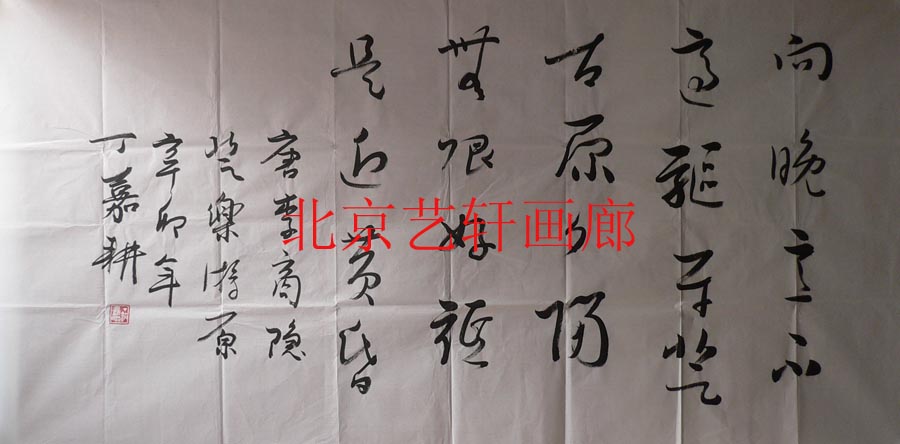 向晚意不
適驅车登
古原夕陽
無限好祗
是近黄昏
唐李商隐
登樂游原
辛卯年
丁嘉耕
北京艺轩画廊